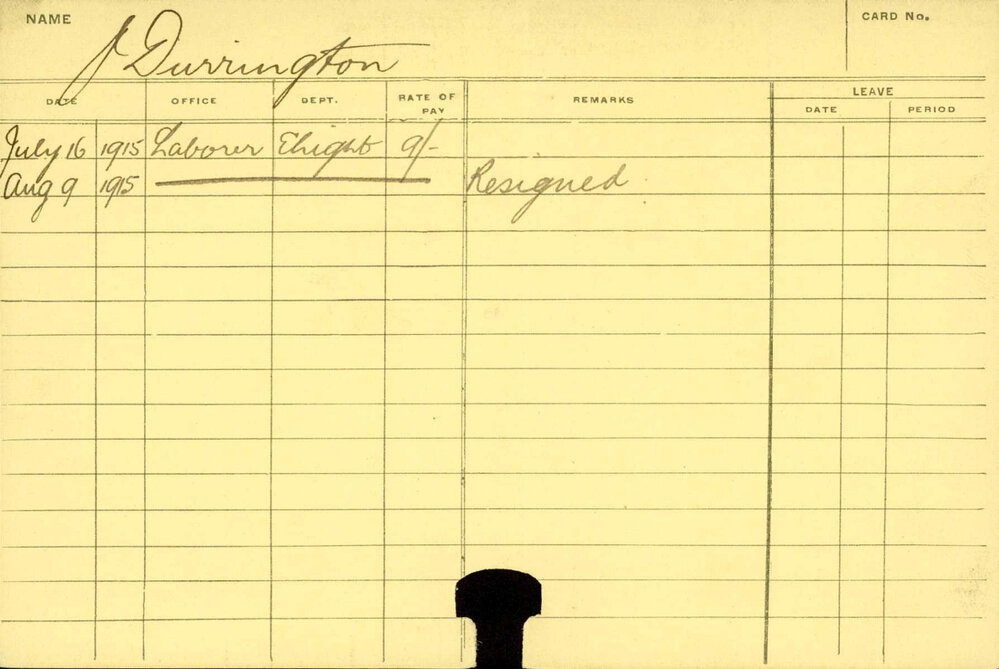 NAME J Durrington CARD No.
DATE OFFICE DEPT. RATE OF PAY REMARKS LEAVE
DATE PERIOD
July 16 1915 Laborer Elight 9/-
Aug 9 1915 Resigned